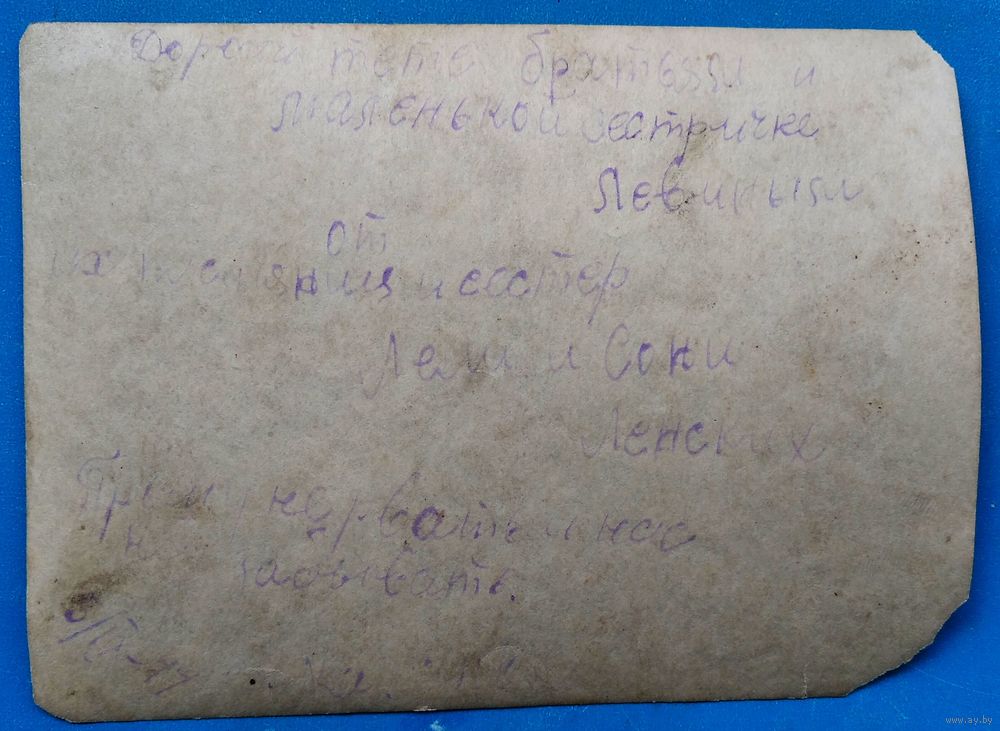 Дорогой тете братьям и
маленькой сестричке
Левиным
от
их племянниц и сестер
Лели и Сони
Ленских
Прошу не рвать и нас
не забывать.
www.ay.by